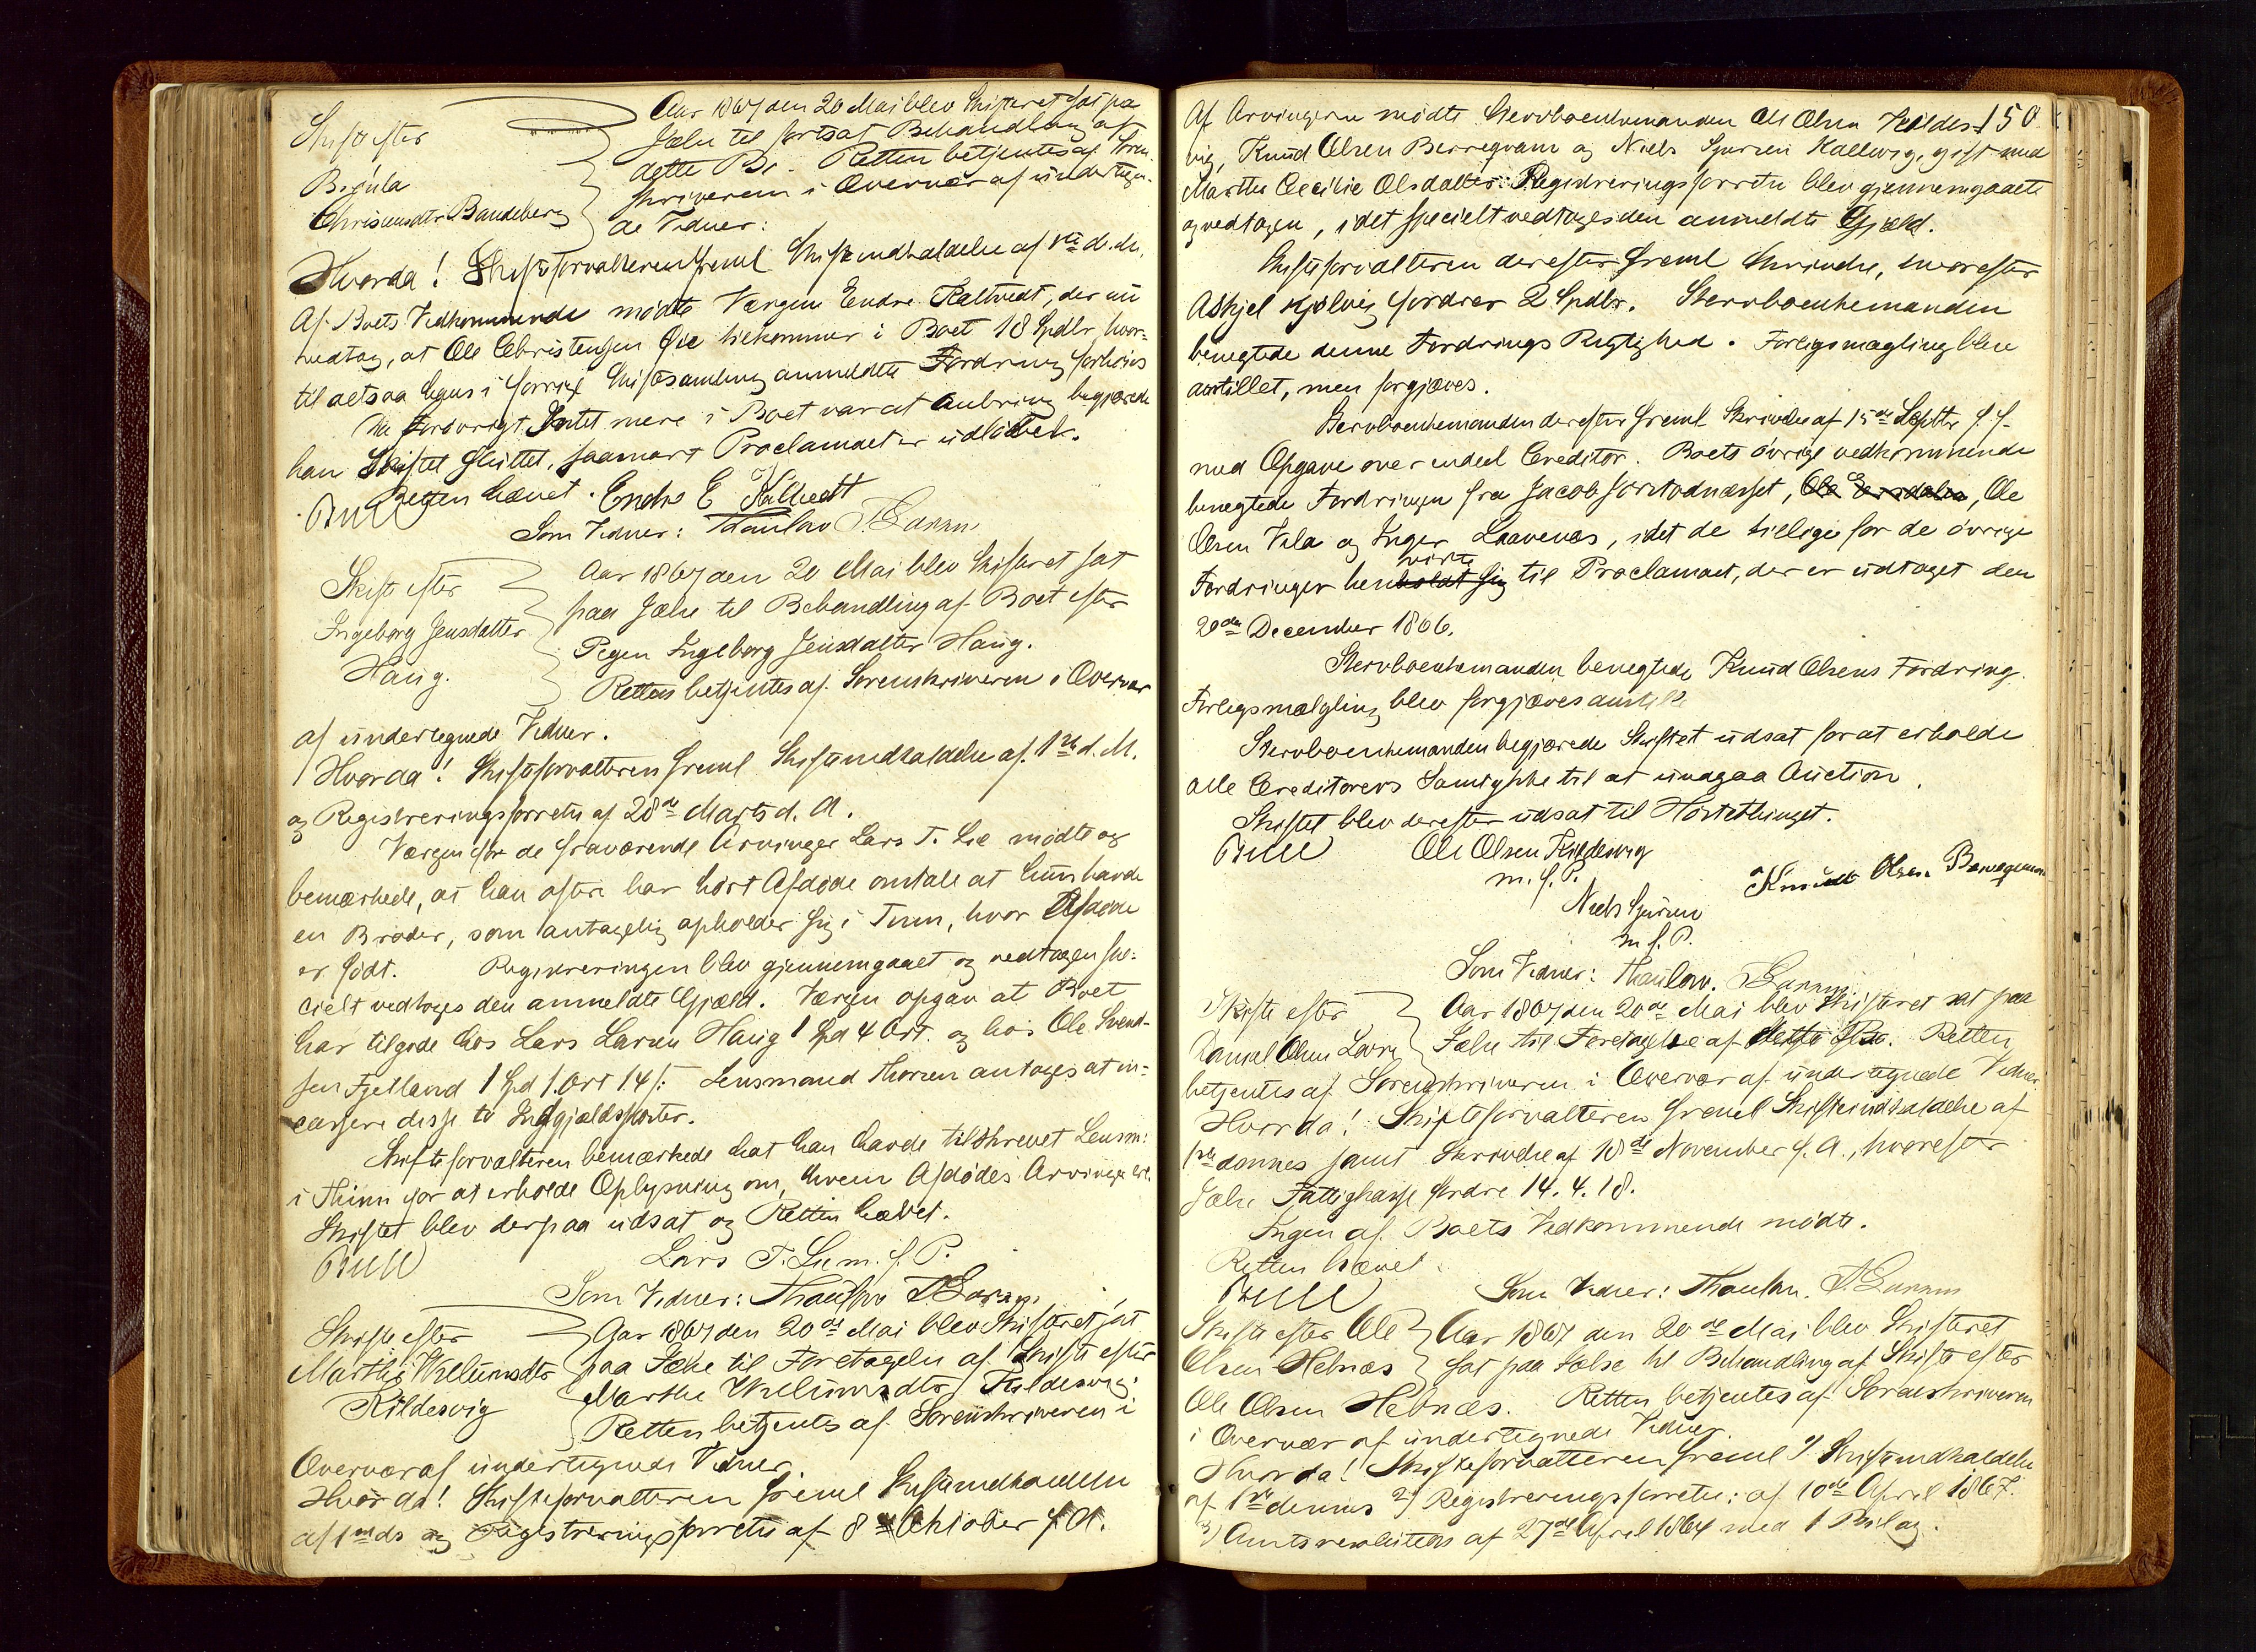 Skifte efter
Brynla
Christensdtr Bandeberg
Aar 1867 den 20 Mai blev Skifteret sat paa
Jælse til fortsat Behandling af
dette Bo. Retten betjentes af Soren-
skriveren i Overvær af undertegn-
de Vidner:
Hvorda! Skifteforvalteren freml Skifteindkaldelse af 1ste d. M.
Af Boets Vedkommende mødte Værgen Endre Kaltvedt, der nu
vedtog, at Ole Christensen Øie bekommer i Boet 18 Spdlr, hvor-
til altsaa hans i forrige Skiftesamling anmeldte Fordring forhøies
Da forøvrigt Intet mere i Boet var at anbringe begjærede
han Skiftet sluttet, saasnart Proclamaet er udløbet.
Retten hævet. Endre E Kaltvedt
Bull
Som Vidner: Thaulow T Larsen
Skifte efter
Ingeborg Jensdatter
Haug.
Aar 1867 den 20 Mai blev Skifteret sat
paa Jælse til Behandling af Boet efter
Pigen Ingeborg Jensdatter Haug.
Retten betjentes af Sorenskriveren i Overvær
af undertegnede Vidner.
Hvorda! Skifteforvalteren freml Skifteindkaldelse af 1ste d. M.
og Registreringsforretn af 28de Marts d. A.
Værgen for de fraværende Arvinger Lars T. Lie mødte og
bemærkede, at han oftere har hørt Afdøde omtale at hun havde
en Broder, som antagelig opholder sig i Tinn, hvor Afdøde
er født. Registreringen blev gjennemgaaet og vedtagen spe-
cielt vedtoges den anmeldte Gjæld. Værgen opgav at Boet
har tilgode hos Lars Larsen Haug 1 Spd 4 Ort. og hos Ole Svend-
sen Fjetland 1 Spd 1 Ort 14 s: Lensmand Thorsen antages at in-
cassere disse to Indgjældsposter.
Skifteforvalteren bemærkede at han havde tilskrevet Lensm:
i Thinn for at erholde Oplysning om, hvem Afdødes Arvinger ere.
Skiftet blev derpaa udsat og Retten hævet.
Bull
Lars T. Lie m. f. P.
Som Vidner: Thaulow T Larsen
Skifte efter
Marthe Willumsdtr
Kildesvig
Aar 1867 den 20de Mai blev Skifteret sat
paa Jælse til Foretagelse af Skifte efter
Marthe Willumsdtr Kildesvig.
Retten betjentes af Sorenskriveren i
Overvær af undertegnede Vidner.
Hvorda! Skifteforvalteren freml Skifteindkaldelse
af 1ste ds og Registreringsforretn af 8de Oktober f. A.
150
Af Arvingerne mødte Stervboenkemanden Ole Olsen Kildes-
vig, Knud Olsen Berreqvam og Niels Sjursen Kallevig, gift med
Marthe Cecilie Olsdatter. Registreringsforretn blev gjennemgaaet
og vedtagen, idet specielt vedtoges den anmeldte Gjæld.
Skifteforvalteren derefter freml Skrivelse, hvorefter
Askjel Kjølvig fordrer 2 Spdlr. Stervboenkemanden
benegtede denne Fordrings Rigtighed. Forligsmægling blev
anstillet, men forgjæves.
Stervboenkemanden derefter freml Skrivelse af 15de Septbr f. A.
med Opgave over endeel Creditor. Boets øvrige vedkommende
benegtede Fordringen fra Jacob, Ole
Olsen Vala og Inger Laavenes, idet de tillige for de øvrige
viste
Fordringer henholdt sig til Proclamaet, der er udtaget den
20de December 1866.
Stervboenkemanden benegtede Knud Olsens Fordring.
Forligsmægling blev forgjæves anstillet
Stervboenkemanden begjærede Skiftet udsat for at erholde
alle Creditorers Samtykke til at undgaa Auction.
Skiftet blev derefter udsat til Høstethinget.
Bull
Ole Olsen Kildesvig
m. f. P.
Knud Olsen Berreqvam
Niels Sjursen
m. f. P.
Som Vidner: Thaulow. T Larsen
Skifte efter
Daniel Olsen Lovra
Aar 1867 den 20de Mai blev Skifteret sat paa
Jælse til Foretagelse af dette Bo. Retten
betjentes af Sorenskriveren i Overvær af undertegnede Vidner.
Hvorda! Skifteforvalteren freml Skifteindkaldelse af
1ste dennes samt Skrivelse af 18de November f. A., hvorefter
Jælse Fattigkasse fordre 14. 4. 18.
Ingen af Boets Vedkommende mødte.
Retten hævet
Bull
Som Vidner: Thaulow. T. Larsen
Skifte efter Ole
Olsen Hebnæs
Aar 1867 den 20de Mai blev Skifteret
sat paa Jælse til Behandling af Skifte efter
Ole Olsen Hebnæs. Retten betjentes af Sorenskriveren
i Overvær af undertegnede Vidner.
Hvorda! Skifteforvalteren freml 1) Skifteindkaldelse
af 1ste dennes 2) Registreringsforretn: af 10de April 1867.
3) Amtsresolution af 27de April 1867 med 1 Bilag.